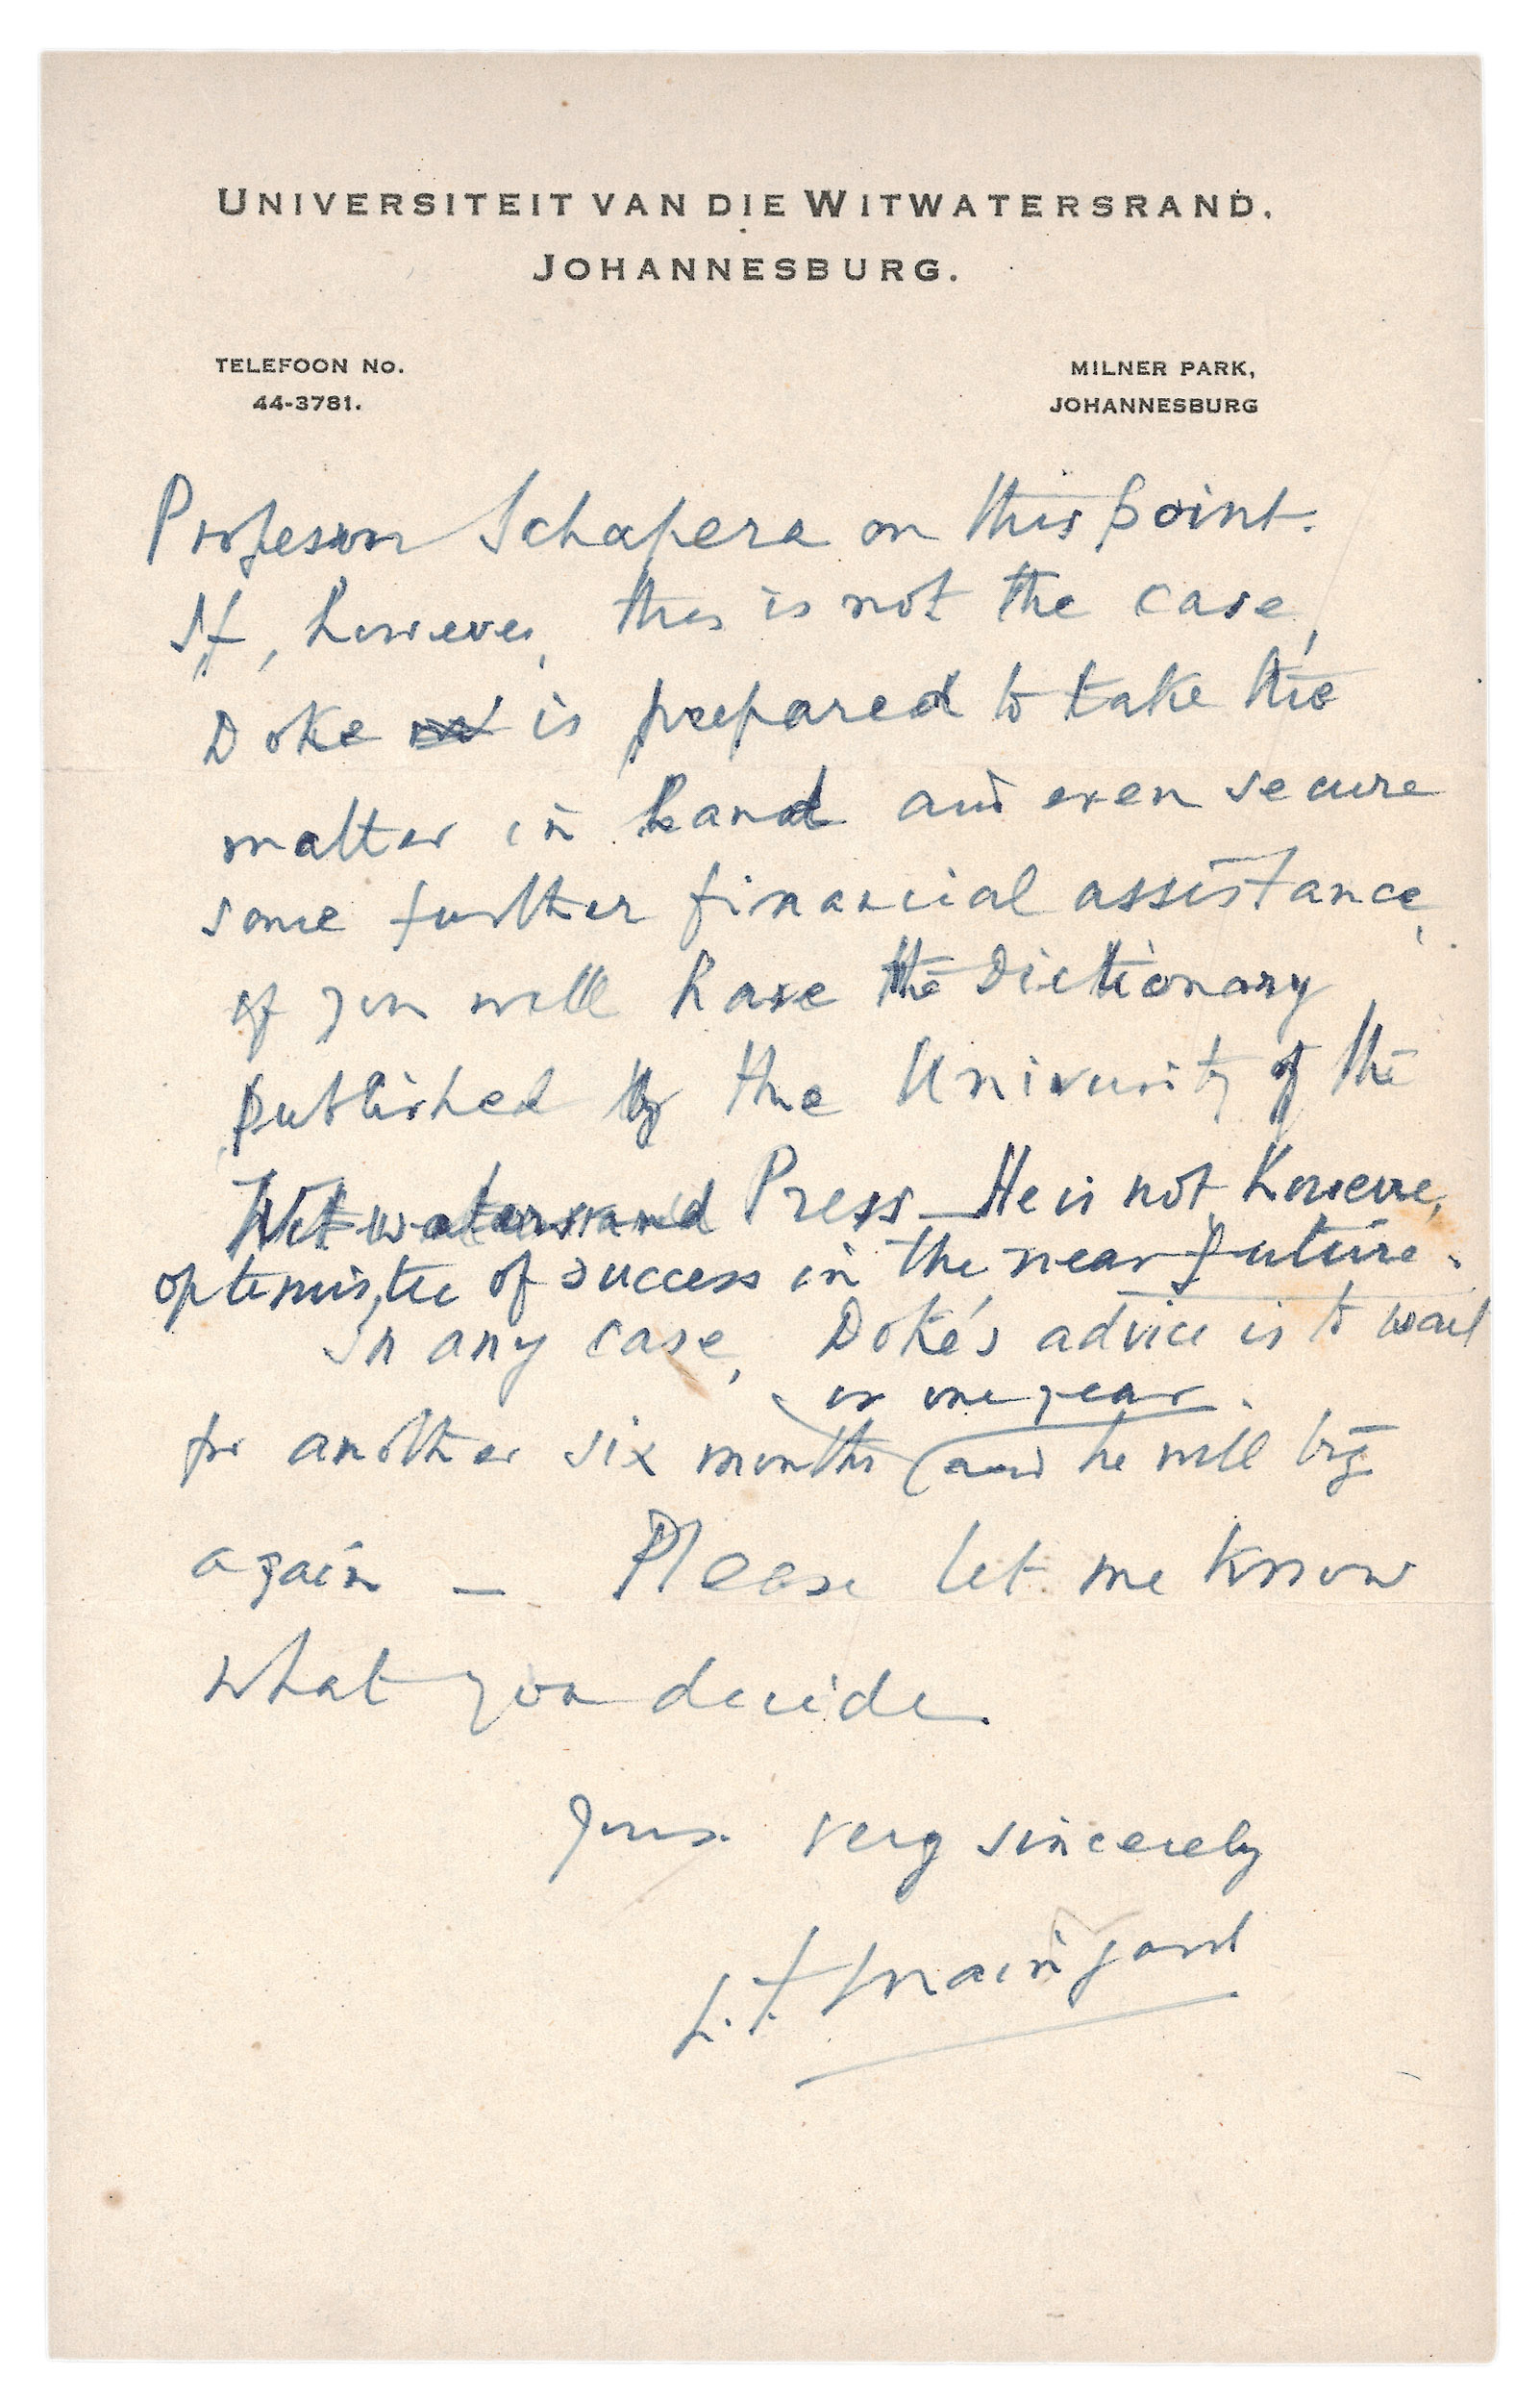 UNIVERSITEIT VAN DIE WITWATERSRAND.
JOHANNESBURG.
TELEFOON No.
44-3781.
MILNER PARK,
JOHANNESBURG
Professor Schapera on this point.
If, however, this is not the case,
Doke is prepared to take the
matter in hand and even secure
some further financial assistance,
if you will have the Dictionary
published by the University of the
Witwatersrand Press — He is not, however,
optimistic of success in the near future.
In any case, Doke's advice is to wait
or one year
for another six months (and he will try
again — Please let me know
what you decide.
Yours very sincerely
L. F. Maingard